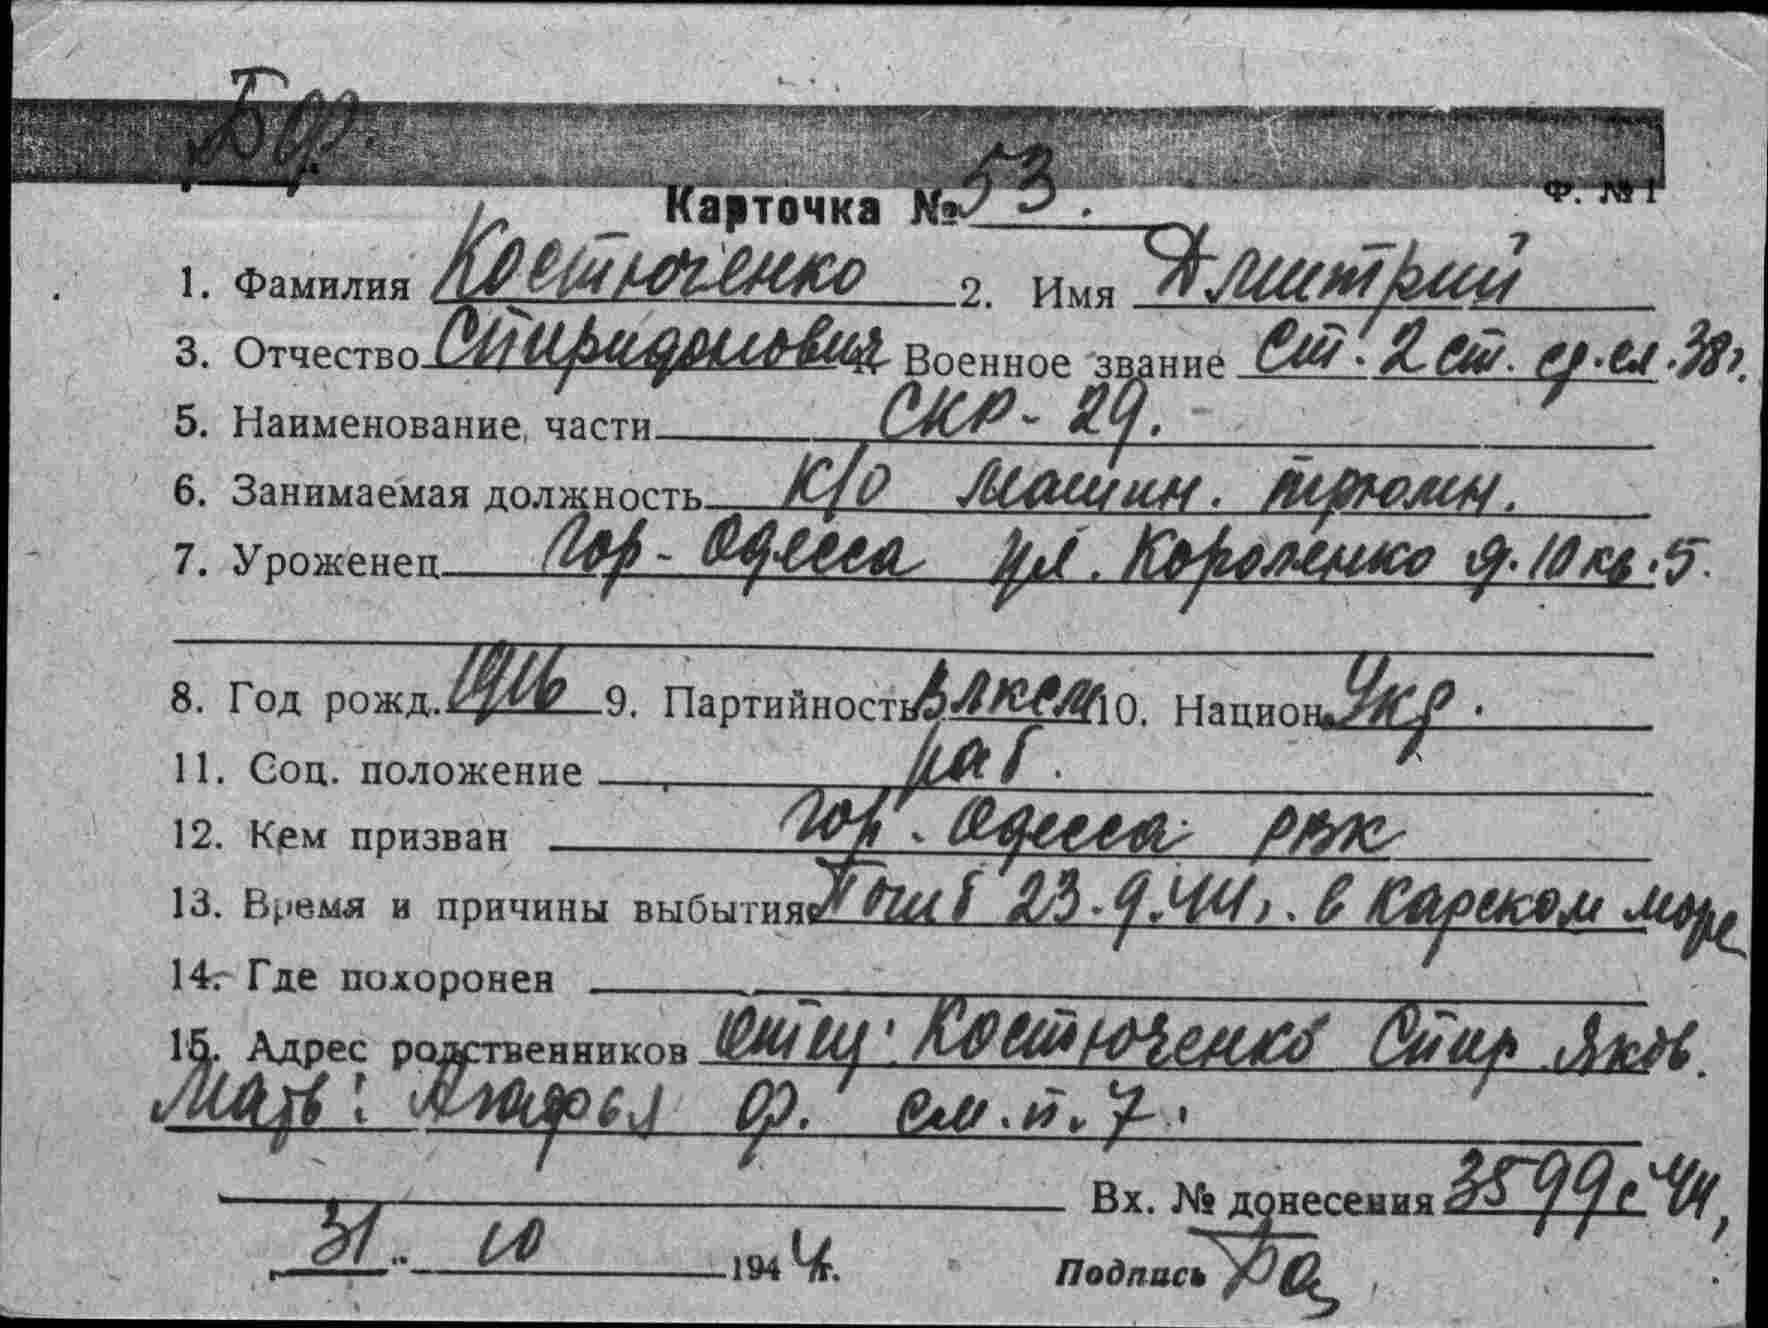 БФ.
Карточка № 53.
Ф. № 1
1. Фамилия Костюченко 2. Имя Дмитрий
3. Отчество Спиридонович Военное звание Ст. 2 ст. ср. сл. 38г.
5. Наименование части СКР-29.
6. Занимаемая должность к/о машин. трюмн.
7. Уроженец гор. Одесса ул. Короленко д. 10 кв. 5.
8. Год рожд. 1916 9. Партийность ВЛКСМ 10. Национ. Укр.
11. Соц. положение раб.
12. Кем призван гор. Одесса РВК
13. Время и причины выбытия Погиб 23.9.44г. в Карском море
14. Где похоронен
15. Адрес родственников отец: Костюченко Спир Яков.
Мать: Агафья Ф. см. п. 7.
Вх. № донесения 3599с 44,
31. 10 1944г.
Подпись